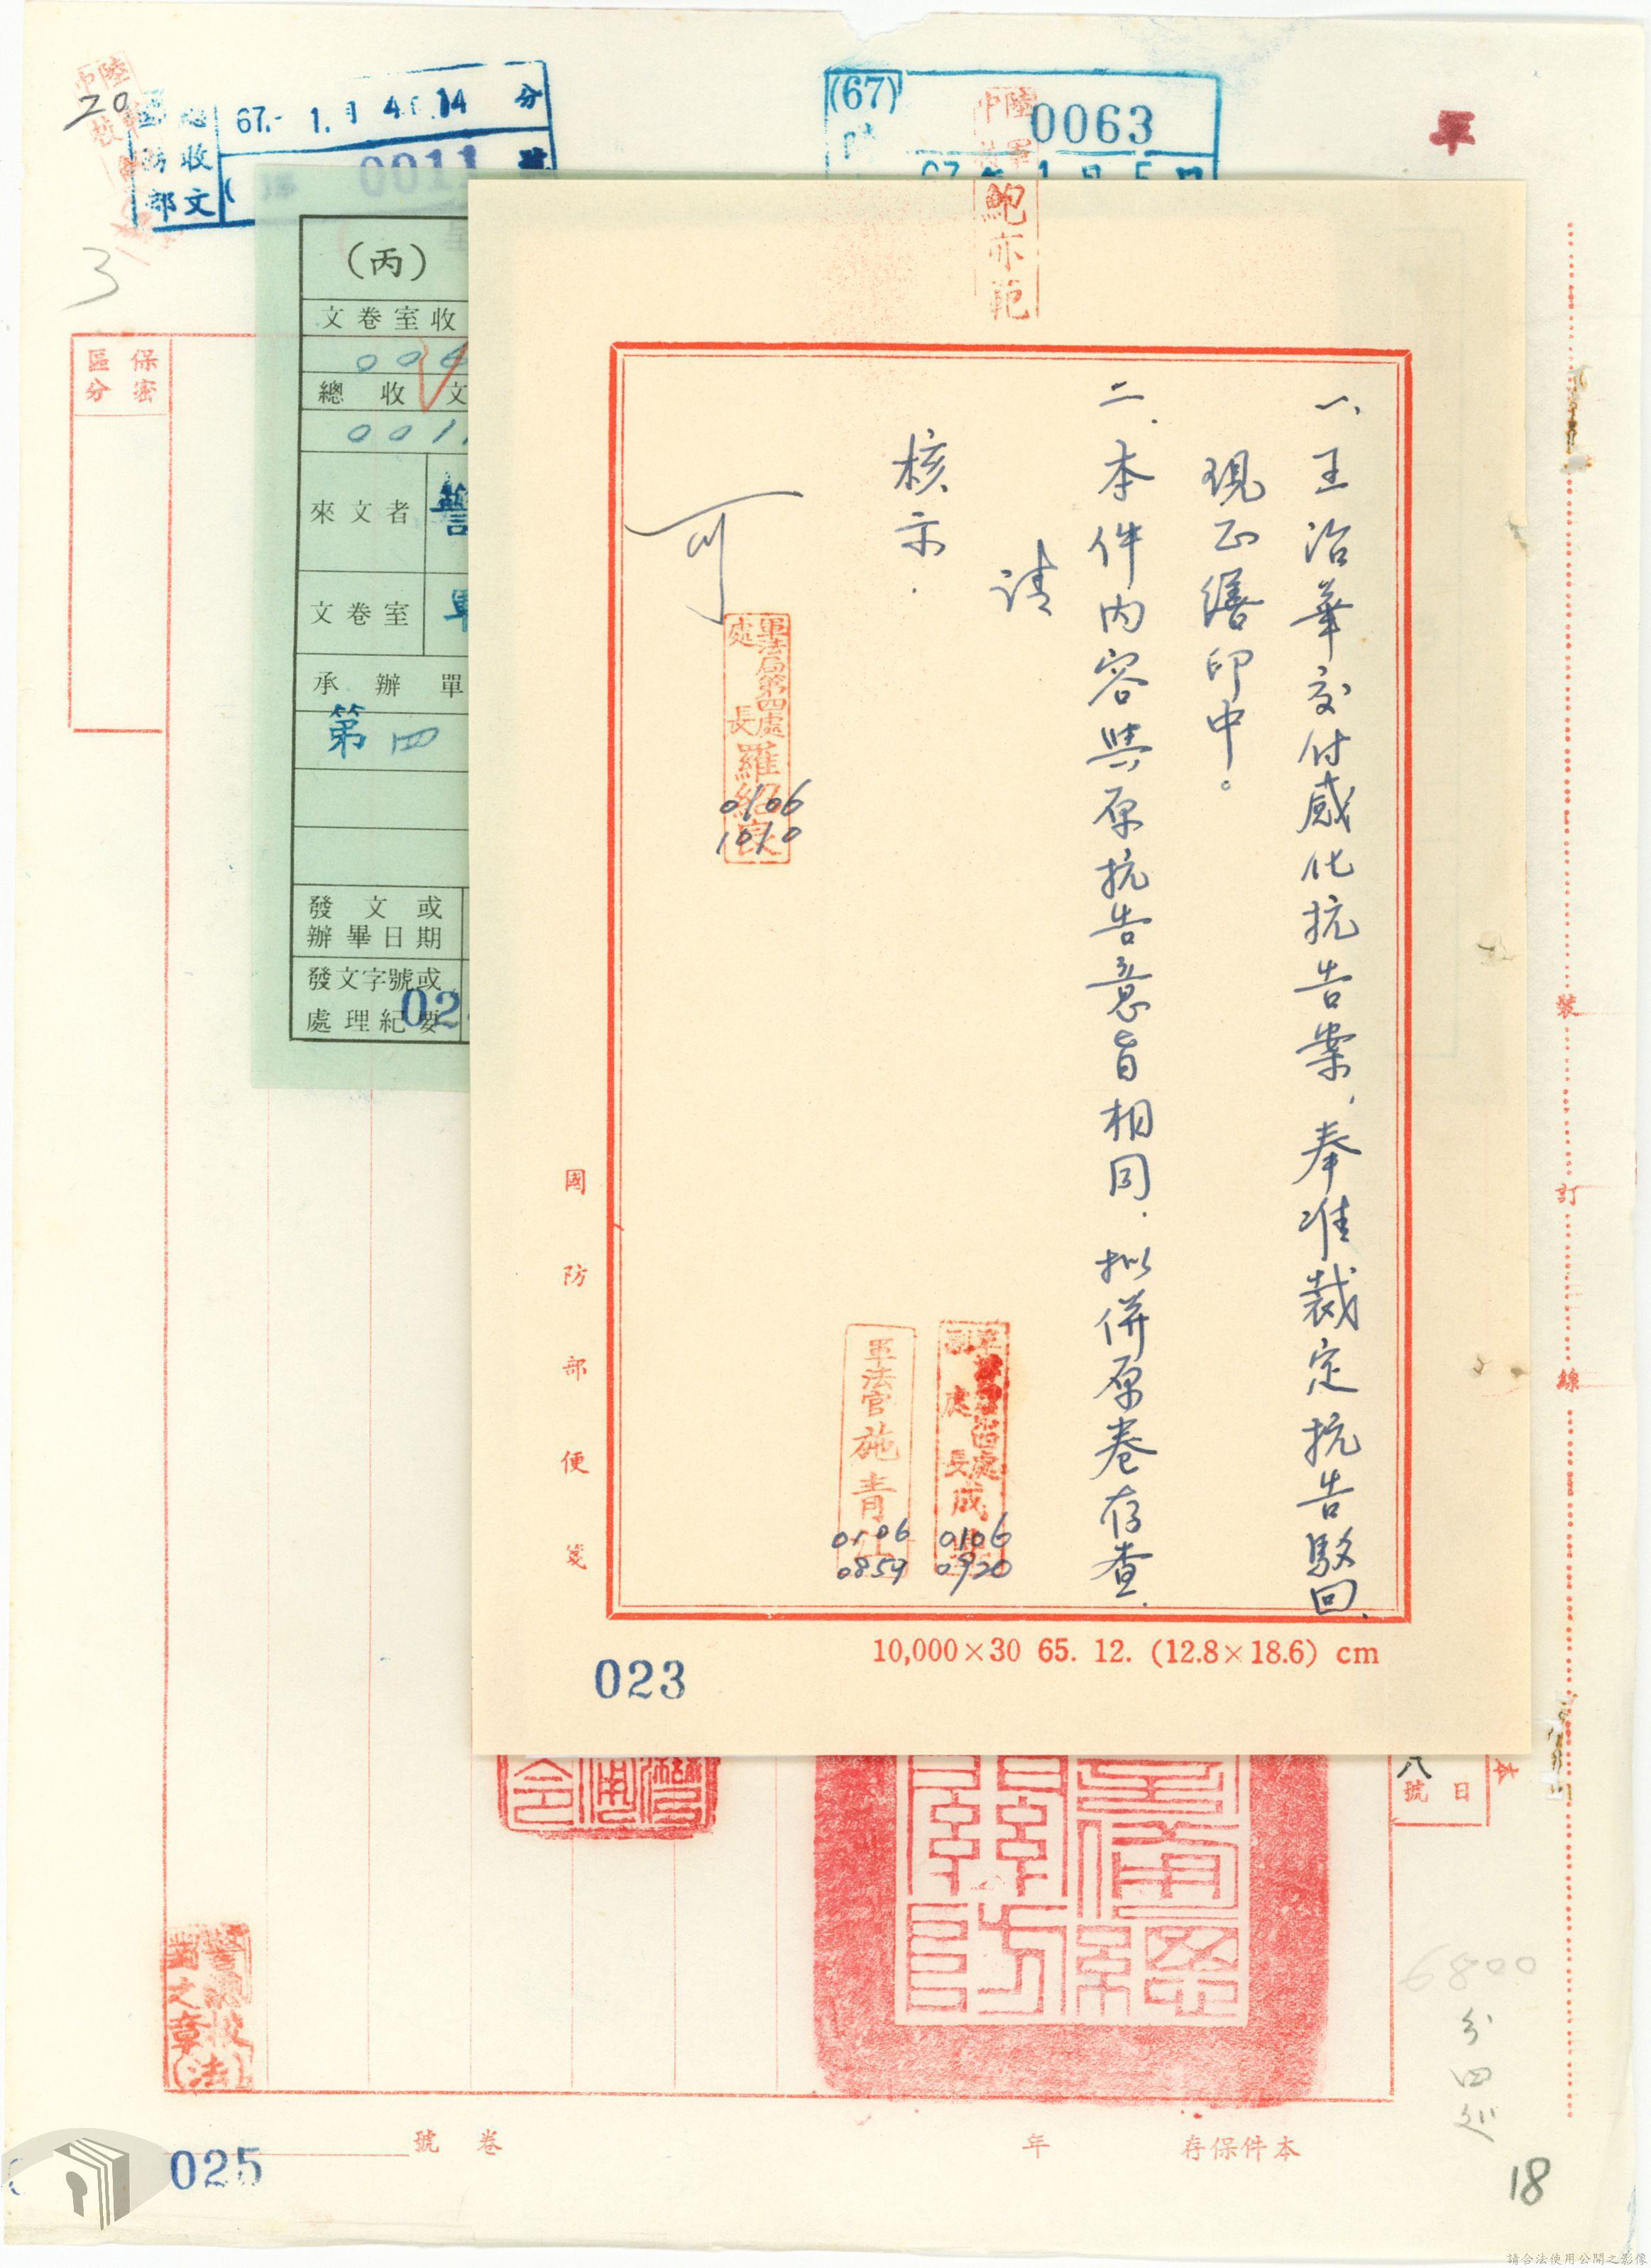 20
3
國防部
總收文
67.-1.
4.
14
分
0011
號
(67)
0063
67年1月5日
平
保密
區分
(丙)
文卷室收
總收文
來文者
警
文卷室
軍
承辦單
第四
發文或
辦畢日期
發文字號或
處理紀要
鮑亦範
一、王治華交付感化抗告案,奉准裁定抗告駁回,
現正繕印中。
二、本件內容與原抗告意旨相同,拟併原卷存查.
請
核示.
可
軍法局第四處
處長羅紹良
0106
1010
處長成
0106
0920
軍法官施青
0106
0859
國防部便箋
10,000×30 65. 12. (12.8×18.6) cm
023
裝
訂
線
本
八
日
號
6800
分
四
18
本件保存
年
卷
號
025
請合法使用公開之影像